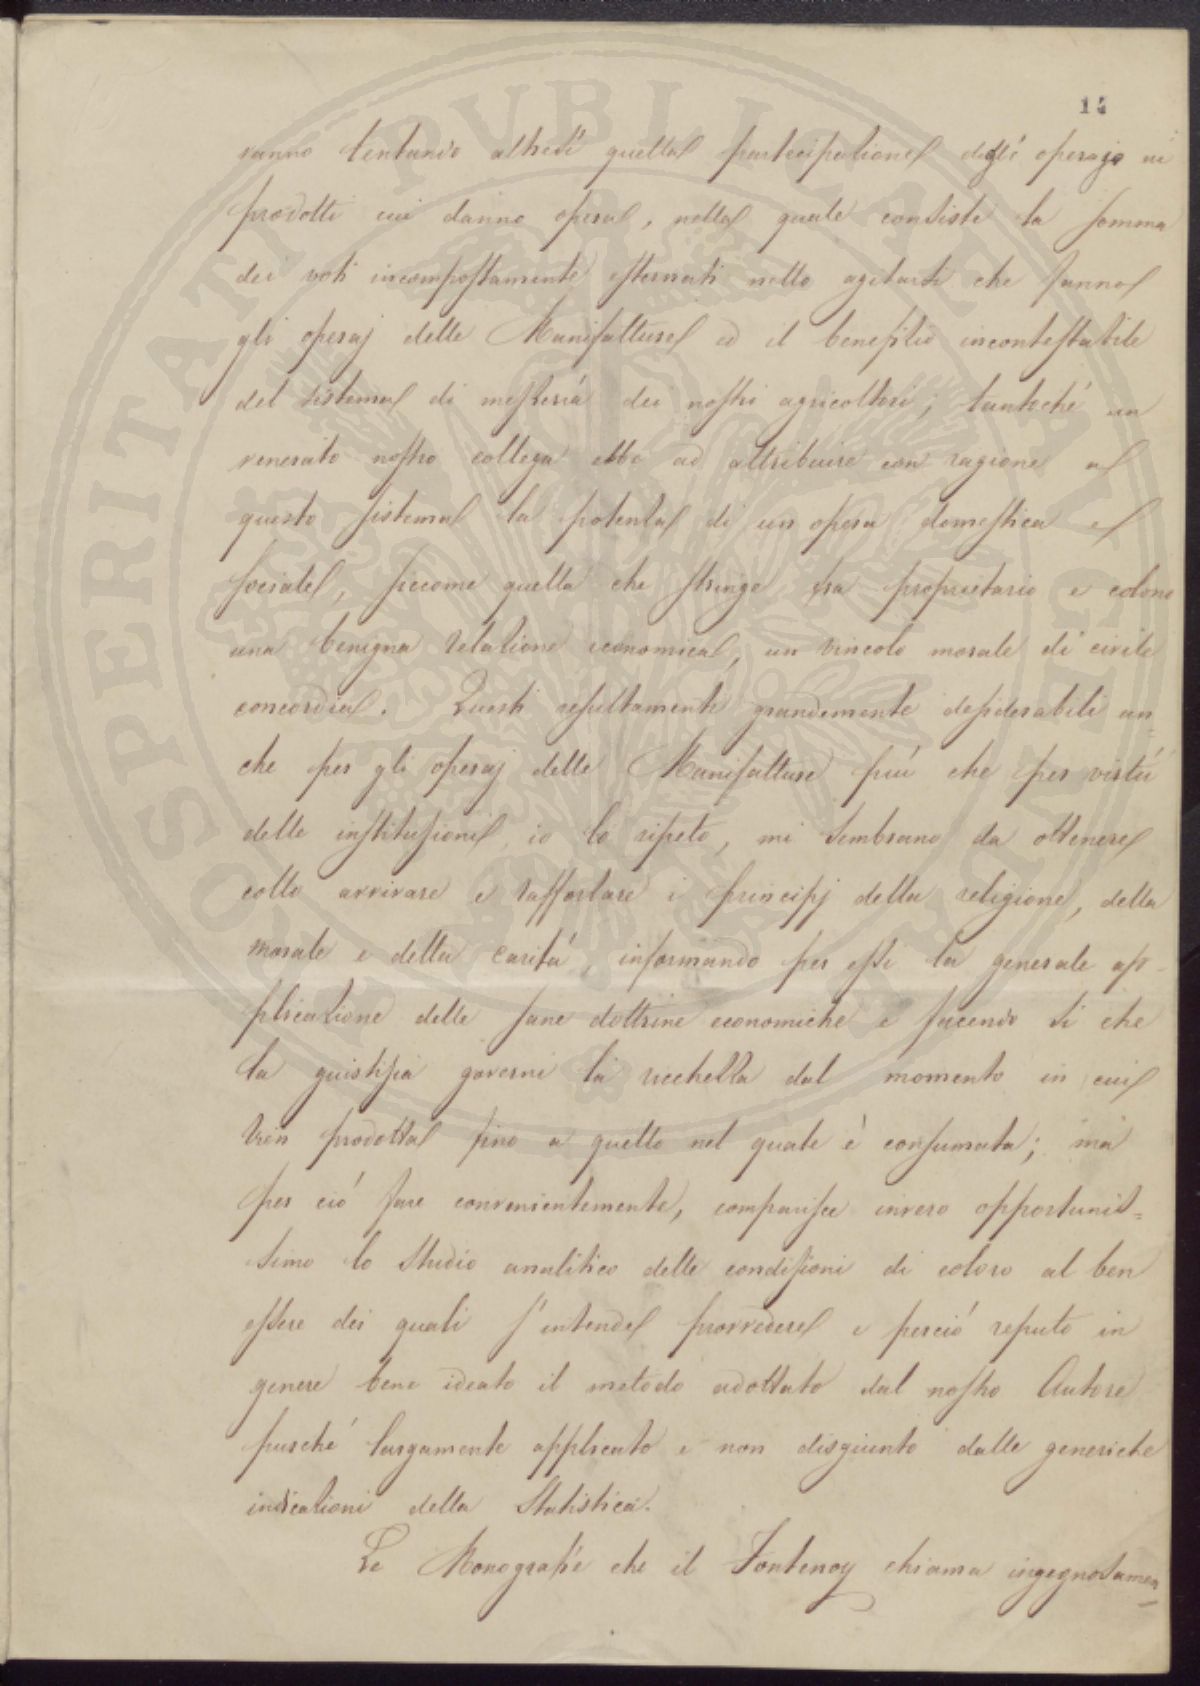 14
vanno tentando altresì quella partecipazione degli operaj ai
prodotti cui danno opera, nella quale consiste la somma
dei voti incompostamente esternati nello agitarsi che fanno
gli operaj delle Manifatture ed il benefizio incontestabile
del sistema di mezzeria dei nostri agricoltori; tantoché un
venerato nostro collega ebbe ad attribuire con ragione a
questo sistema la potenza di un opera domestica e
sociale, siccome quella che stringe fra proprietario e colono
una benigna relazione economica, un vincolo morale di civile
concordia. Questi resultamenti grandemente desiderabili an=
che per gli operaj delle Manifatture più che per virtù
delle instituzioni, io lo ripeto, mi sembrano da ottenere
collo avvivare e raffortare i principj della religione, della
morale e della carità, informando per essi la generale ap-
plicazione delle sane dottrine economiche e facendo sì che
la giustizia governi la ricchezza dal momento in cui
vien prodotta fino a quello nel quale è consumata; ma
per ciò fare convenientemente, comparisce invero opportunis=
simo lo Studio analitico delle condizioni di coloro al ben
essere dei quali s'intende provvedere e perciò reputo in
genere bene ideato il metodo adottato dal nostro Autore
purché largamente applicato e non disgiunto dalle generiche
indicazioni della Statistica.
Le Monografie che il Fontenoy chiama ingegnosamen=
SOCIETATI PUBLICAE AUGENDAE PROSPERITATI